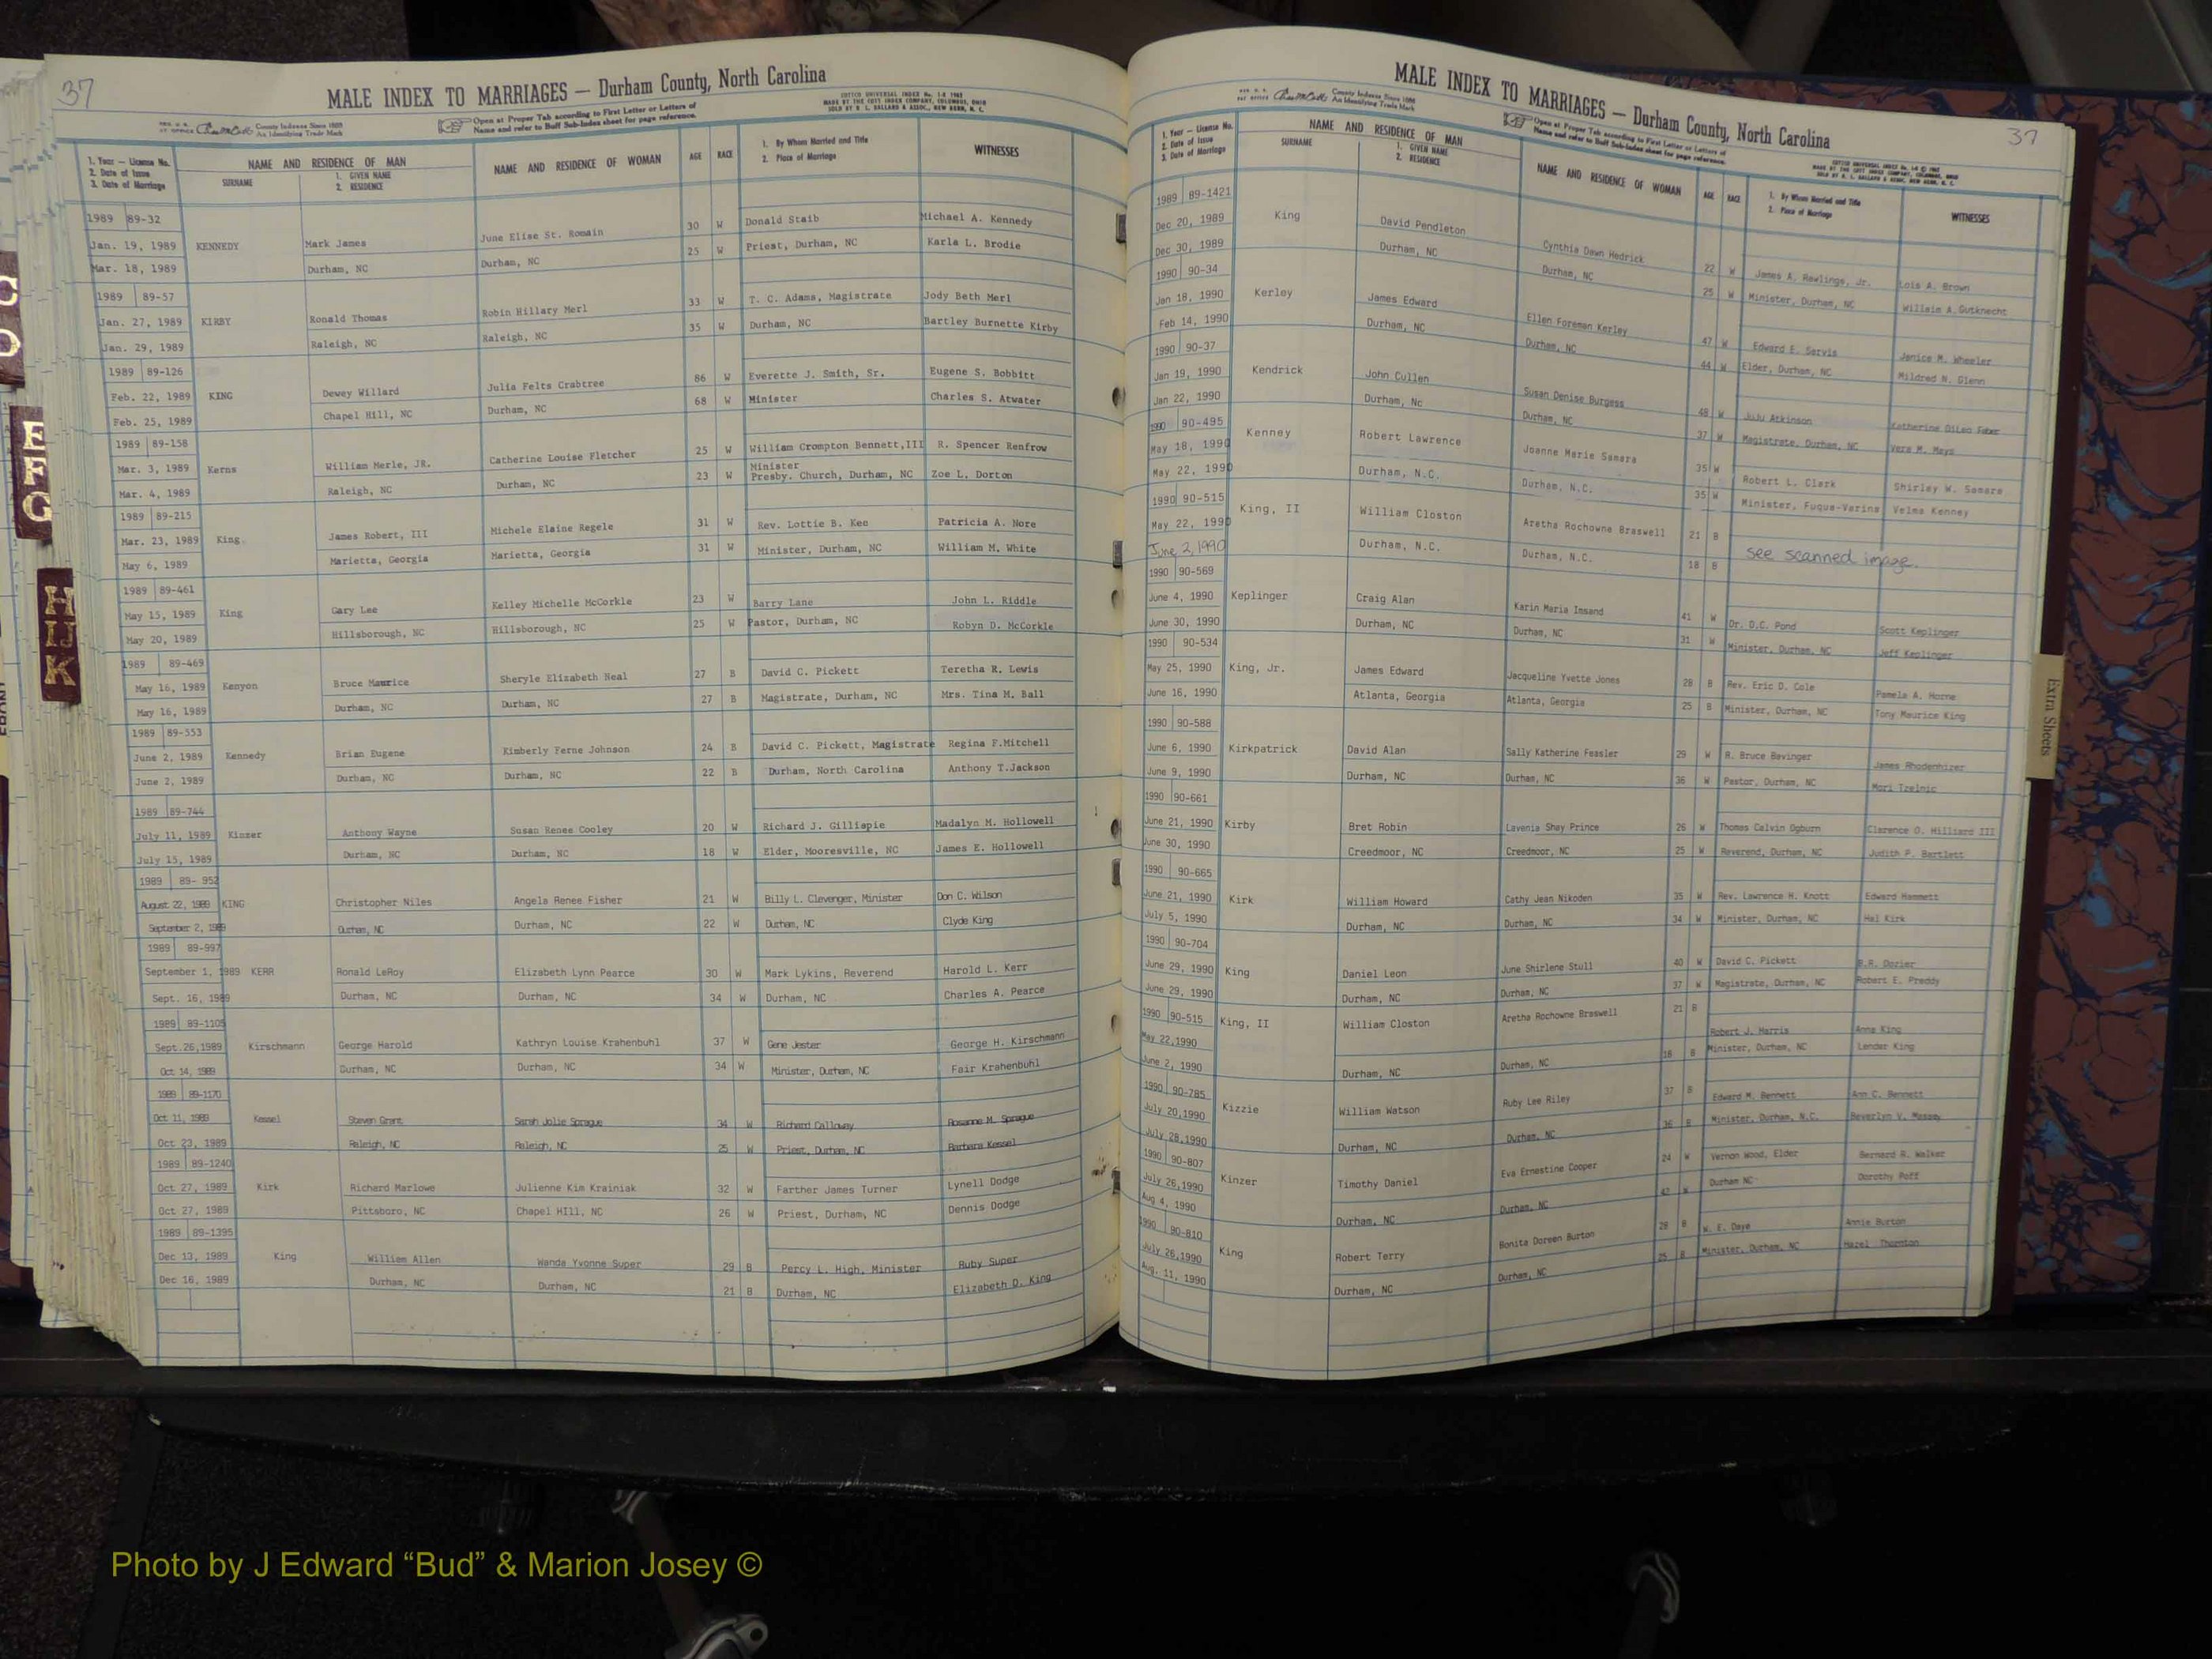 37
MALE INDEX TO MARRIAGES — Durham County, North Carolina
County Indexes Since 1888
An Identifying Trade Mark
Open at Proper Tab according to First Letter or Letters of
Name and refer to Buff Sub-Index sheet for page reference.
COTTCO UNIVERSAL INDEX
MADE BY THE COTT INDEX COMPANY, COLUMBUS, OHIO
1. Year — License No.
2. Date of Issue
3. Date of Marriage
NAME AND RESIDENCE OF MAN
SURNAME
1. GIVEN NAME
2. RESIDENCE
NAME AND RESIDENCE OF WOMAN
AGE
RACE
1. By Whom Married and Title
2. Place of Marriage
WITNESSES
1989 89-32 30 W Donald Staib Michael A. Kennedy
Jan. 19, 1989 KENNEDY Mark James June Elise St. Romain 25 W Priest, Durham, NC Karla L. Brodie
Mar. 18, 1989 Durham, NC Durham, NC
1989 89-57 33 W T. C. Adams, Magistrate Jody Beth Merl
Jan. 27, 1989 KIRBY Ronald Thomas Robin Hillary Merl 35 W Durham, NC Bartley Burnette Kirby
Jan. 29, 1989 Raleigh, NC Raleigh, NC
1989 89-126 86 W Everette J. Smith, Sr. Eugene S. Bobbitt
Feb. 22, 1989 KING Dewey Willard Julia Felts Crabtree 68 W Minister Charles S. Atwater
Feb. 25, 1989 Chapel Hill, NC Durham, NC
1989 89-158 25 W William Crompton Bennett,III R. Spencer Renfrow
Mar. 3, 1989 Kerns William Merle, JR. Catherine Louise Fletcher 23 W Minister
Presby. Church, Durham, NC Zoe L. Dorton
Mar. 4, 1989 Raleigh, NC Durham, NC
1989 89-215 31 W Rev. Lottie B. Kee Patricia A. Nore
Mar. 23, 1989 King James Robert, III Michele Elaine Regele 31 W Minister, Durham, NC William M. White
May 6, 1989 Marietta, Georgia Marietta, Georgia
1989 89-461 23 W Barry Lane John L. Riddle
May 15, 1989 King Gary Lee Kelley Michelle McCorkle 25 W Pastor, Durham, NC Robyn D. McCorkle
May 20, 1989 Hillsborough, NC Hillsborough, NC
1989 89-469 27 B David C. Pickett Teretha R. Lewis
May 16, 1989 Kenyon Bruce Maurice Sheryle Elizabeth Neal 27 B Magistrate, Durham, NC Mrs. Tina M. Ball
May 16, 1989 Durham, NC Durham, NC
1989 89-553 24 B David C. Pickett, Magistrate Regina F.Mitchell
June 2, 1989 Kennedy Brian Eugene Kimberly Ferne Johnson 22 B Durham, North Carolina Anthony T.Jackson
June 2, 1989 Durham, NC Durham, NC
1989 89-744 20 W Richard J. Gillispie Madalyn M. Hollowell
July 11, 1989 Kinzer Anthony Wayne Susan Renee Cooley 18 W Elder, Mooresville, NC James E. Hollowell
July 15, 1989 Durham, NC Durham, NC
1989 89- 952 21 W Billy L. Clevenger, Minister Don C. Wilson
August 22, 1989 KING Christopher Niles Angela Renee Fisher 22 W Durham, NC Clyde King
September 2, 1989 Durham, NC Durham, NC
1989 89-997
September 1, 1989 KERR Ronald LeRoy Elizabeth Lynn Pearce 30 W Mark Lykins, Reverend Harold L. Kerr
Sept. 16, 1989 Durham, NC Durham, NC 34 W Durham, NC Charles A. Pearce
1989 89-1105
Sept.26,1989 Kirschmann George Harold Kathryn Louise Krahenbuhl 37 W Gene Jester George H. Kirschmann
Oct 14, 1989 Durham, NC Durham, NC 34 W Minister, Durham, NC Fair Krahenbuhl
1989 89-1170
Oct 11, 1989 Kessel Steven Grant Sarah Jolie Sprague 34 W Richard Calloway Rosanne M. Sprague
Oct 23, 1989 Raleigh, NC Raleigh, NC 25 W Priest, Durham, NC Barbara Kessel
1989 89-1240
Oct 27, 1989 Kirk Richard Marlowe Julienne Kim Krainiak 32 W Farther James Turner Lynell Dodge
Oct 27, 1989 Pittsboro, NC Chapel HIll, NC 26 W Priest, Durham, NC Dennis Dodge
1989 89-1395
Dec 13, 1989 King William Allen Wanda Yvonne Super 29 B Percy L. High, Minister Ruby Super
Dec 16, 1989 Durham, NC Durham, NC 21 B Durham, NC Elizabeth D. King
MALE INDEX TO MARRIAGES — Durham County, North Carolina
37
County Indexes Since 1888
An Identifying Trade Mark
Open at Proper Tab according to First Letter or Letters of
Name and refer to Buff Sub-Index sheet for page reference.
1. Year — License No.
2. Date of Issue
3. Date of Marriage
NAME AND RESIDENCE OF MAN
SURNAME
1. GIVEN NAME
2. RESIDENCE
NAME AND RESIDENCE OF WOMAN
AGE
RACE
1. By Whom Married and Title
2. Place of Marriage
WITNESSES
1989 89-1421
Dec 20, 1989 King David Pendleton Cynthia Dawn Hedrick 22 W James A. Rawlings, Jr. Lois A. Brown
Dec 30, 1989 Durham, NC Durham, NC 25 W Minister, Durham, NC William A.Gutknecht
1990 90-34
Jan 18, 1990 Kerley James Edward Ellen Foreman Kerley 47 W Edward E. Sarvis Janice M. Wheeler
Feb 14, 1990 Durham, NC Durham, NC 44 W Elder, Durham, NC Mildred N. Glenn
1990 90-37
Jan 19, 1990 Kendrick John Cullen Susan Denise Burgess 48 W JuJu Atkinson Katherine DiLeo Faber
Jan 22, 1990 Durham, Nc Durham, NC 37 W Magistrate, Durham, NC Vera M. Mayo
1990 90-495
May 18, 1990 Kenney Robert Lawrence Joanne Marie Samara 35 W Robert L. Clark Shirley W. Samara
May 22, 1990 Durham, N.C. Durham, N.C. 35 W Minister, Fuqua-Varina Velma Kenney
1990 90-515
May 22, 1990 King, II William Closton Aretha Rochowne Braswell 21 B see scanned image.
June 2, 1990 Durham, N.C. Durham, N.C. 18 B
1990 90-569
June 4, 1990 Keplinger Craig Alan Karin Maria Imsand 41 W Dr. D.C. Pond Scott Keplinger
June 30, 1990 Durham, NC Durham, NC 31 W Minister, Durham, NC Jeff Keplinger
1990 90-534
May 25, 1990 King, Jr. James Edward Jacqueline Yvette Jones 28 B Rev. Eric D. Cole Pamela A. Horne
June 16, 1990 Atlanta, Georgia Atlanta, Georgia 25 B Minister, Durham, NC Tony Maurice King
1990 90-588
June 6, 1990 Kirkpatrick David Alan Sally Katherine Feasler 29 W R. Bruce Bavinger James Rhodenhizer
June 9, 1990 Durham, NC Durham, NC 36 W Pastor, Durham, NC Mori Tzelnic
1990 90-661
June 21, 1990 Kirby Bret Robin Lavenia Shay Prince 26 W Thomas Calvin Ogburn Clarence O. Hilliard III
June 30, 1990 Creedmoor, NC Creedmoor, NC 25 W Reverend, Durham, NC Judith P. Bartlett
1990 90-665
June 21, 1990 Kirk William Howard Cathy Jean Nikoden 35 W Rev. Lawrence H. Knott Edward Hammett
July 5, 1990 Durham, NC Durham, NC 34 W Minister, Durham, NC Hal Kirk
1990 90-704
June 29, 1990 King Daniel Leon June Shirlene Stull 40 W David C. Pickett B.R. Dozier
June 29, 1990 Durham, NC Durham, NC 37 W Magistrate, Durham, NC Robert E. Preddy
1990 90-515 King, II William Closton Aretha Rochowne Braswell 21 B Robert J. Harris Anna King
May 22,1990 Minister, Durham, NC Lender King
June 2, 1990 Durham, NC Durham, NC 18 B
1990 90-785
July 20,1990 Kizzie William Watson Ruby Lee Riley 37 B Edward M. Bennett Ann C. Bennett
July 28,1990 Durham, NC Durham, NC 36 B Minister, Durham, N.C. Beverlyn V. Massey
1990 90-807
July 26,1990 Kinzer Timothy Daniel Eva Ernestine Cooper 24 W Vernon Wood, Elder Bernard R. Walker
Aug 4, 1990 Durham, NC Durham, NC W Durham NC Dorothy Poff
1990 90-810
July 26,1990 King Robert Terry Bonita Doreen Burton 28 B W. E. Daye Annie Burton
Aug. 11, 1990 Durham, NC Durham, NC 25 B Minister, Durham, NC Hazel Thornton
C
D
E
F
G
H
IJ
K
Extra Sheets
Photo by J Edward “Bud” & Marion Josey ©